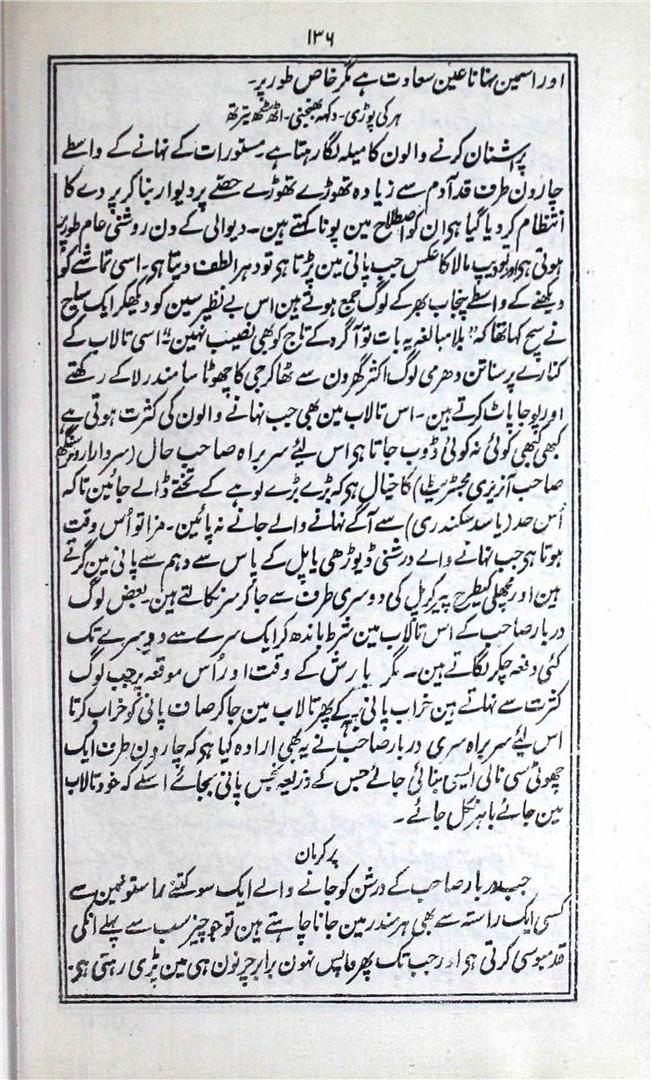 ۱۳۶
اور اسمین نہانا عین سعادت ہے مگر خاص طور پر۔
ہر کی پوڑی۔ دکھ بھنجنی۔ اٹھسٹھ تیرتھ
پر اشنان کرنے والون کا میلہ لگا رہتا ہے۔ مستورات کے نہانے کے واسطے
چارون طرف قد آدم سے زیادہ تھوڑے تھوڑے حصے پر دیوار بنا کر پردے کا
انتظام کر دیا گیا ہی ان کو اصطلاح مین پونا کہتے ہین۔ دیوالی کے دن روشنی عام طور پر
ہوتی ہی اور تو دیپ مالا کا عکس جب پانی مین پڑتا ہی تو دہرا لطف دیتا ہی۔ اسی تماشے کو
دیکھنے کے واسطے پنجاب بھر کے لوگ جمع ہوتے ہین اس بے نظیر سین کو دیکھکر ایک سیاح
نے سچ کہا تھا کہ "بلا مبالغہ یہ بات تو آگرہ کے تاج کو بھی نصیب نہین" اسی تالاب کے
کنارے پر سناتن دھرمی لوگ اکثر گھرون سے ٹھاکر جی کا چھوٹا سا مندر لا کے رکھتے
اور پوجا پاٹ کرتے ہین۔ اس تالاب مین بھی جب نہانے والون کی کثرت ہوتی ہے
کبھی کبھی کوئی نہ کوئی ڈوب جاتا ہی اس لیئے سربراہ صاحب حال (سردار اروڑ سنگھ
صاحب آنریری مجسٹریٹ) کا خیال ہی کہ بڑے بڑے لوہے کے تختے ڈالے جائین تاکہ
اُس حد (یا سد سکندری) سے آگے نہانے والے جانے نہ پائین۔ مزا تو اُس وقت
ہوتا ہی جب نہانے والے درشنی ڈیوڑھی یا پل کے پاس سے دہم سے پانی مین گرتے
ہین اور مچھلی کیطرح پیر کر پل کی دوسری طرف سے جا کر سر نکالتے ہین۔ بعض لوگ
دربار صاحب کے اس تالاب مین شرط باندھ کر ایک سرے سے دوسرے تک
کئی دفعہ چکر لگاتے ہین۔ مگر بارش کے وقت اور اُس موقعہ پر جب لوگ
کثرت سے نہاتے ہین خراب پانی بہہ کے پھر تالاب مین جا کر صاف پانی کو خراب کرتا
اس لیئے سربراہ سری دربار صاحب نے یہ بھی ارادہ کیا ہی کہ چارون طرف ایک
چھوٹی سی نالی ایسی بنائی جائے جس کے ذریعہ نجس پانی بجائے اسکے کہ خود تالاب
مین جائے باہر نکل جائے۔
پرکرمان
جب دربار صاحب کے درشن کو جانے والے ایک سو کتنے راستونمین سے
کسی ایک راستہ سے بھی ہر مندر مین جانا چاہتے ہین تو جو چیز سب سے پہلے انکی
قدمبوسی کرتی ہی اور جب تک پھر واپس نہون برابر چرنون ہی مین پڑی رہتی ہی۔